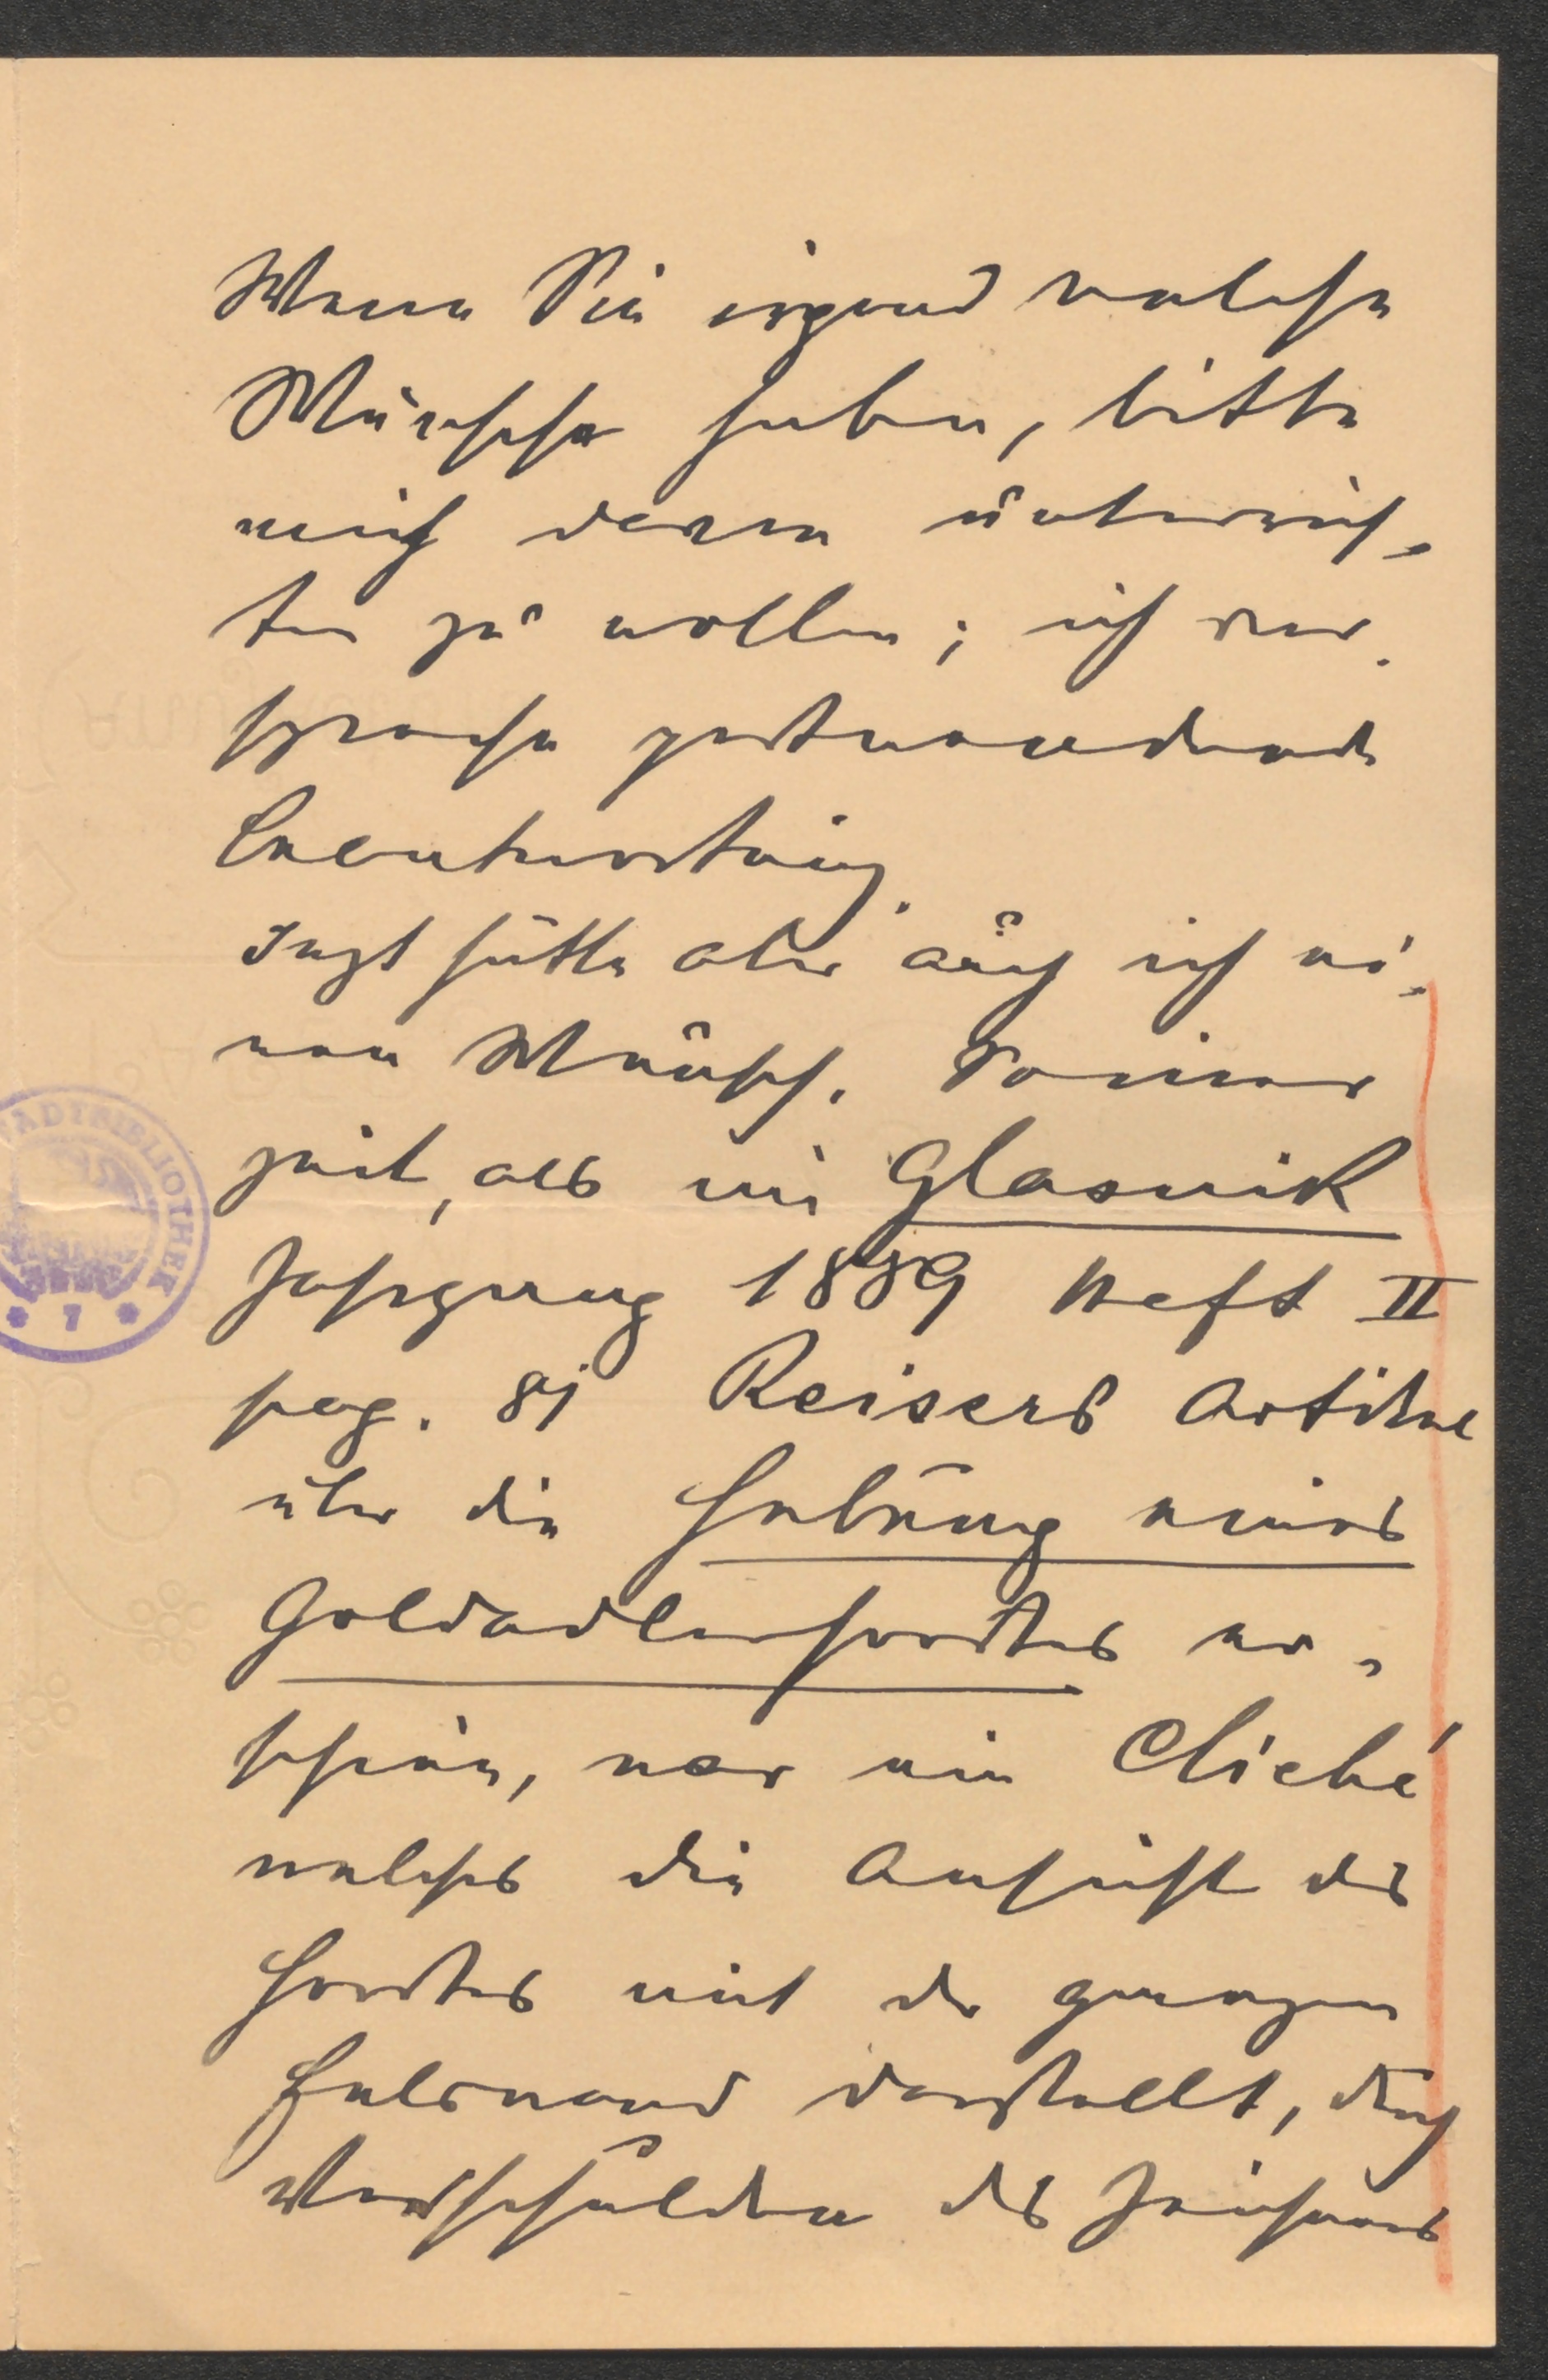 Wenn Sie irgend welche
Wünsche haben, bitte
mich davon unterrich-
ten zu wollen; ich ver-
spreche postwendende
Beantwortung.
Jezt hätte aber auch ich ei-
nen Wunsch. Seiner
zeit, als im Glasnik
Jahrgang 1889 Heft II
pag. 81 Reisers Artikel
über die Hebung eines
Goldadlerhorstes er-
schien, war ein Cliché
welches die Ansicht des
Horstes mit der ganzen
Felswand darstellt, durch
Verschulden des Zeichners
STADTBIBLIOTHEK
* 7 *